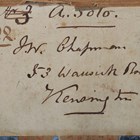 A. Solo.
J.W. Chapman
53 Warwick Ro
Kensington